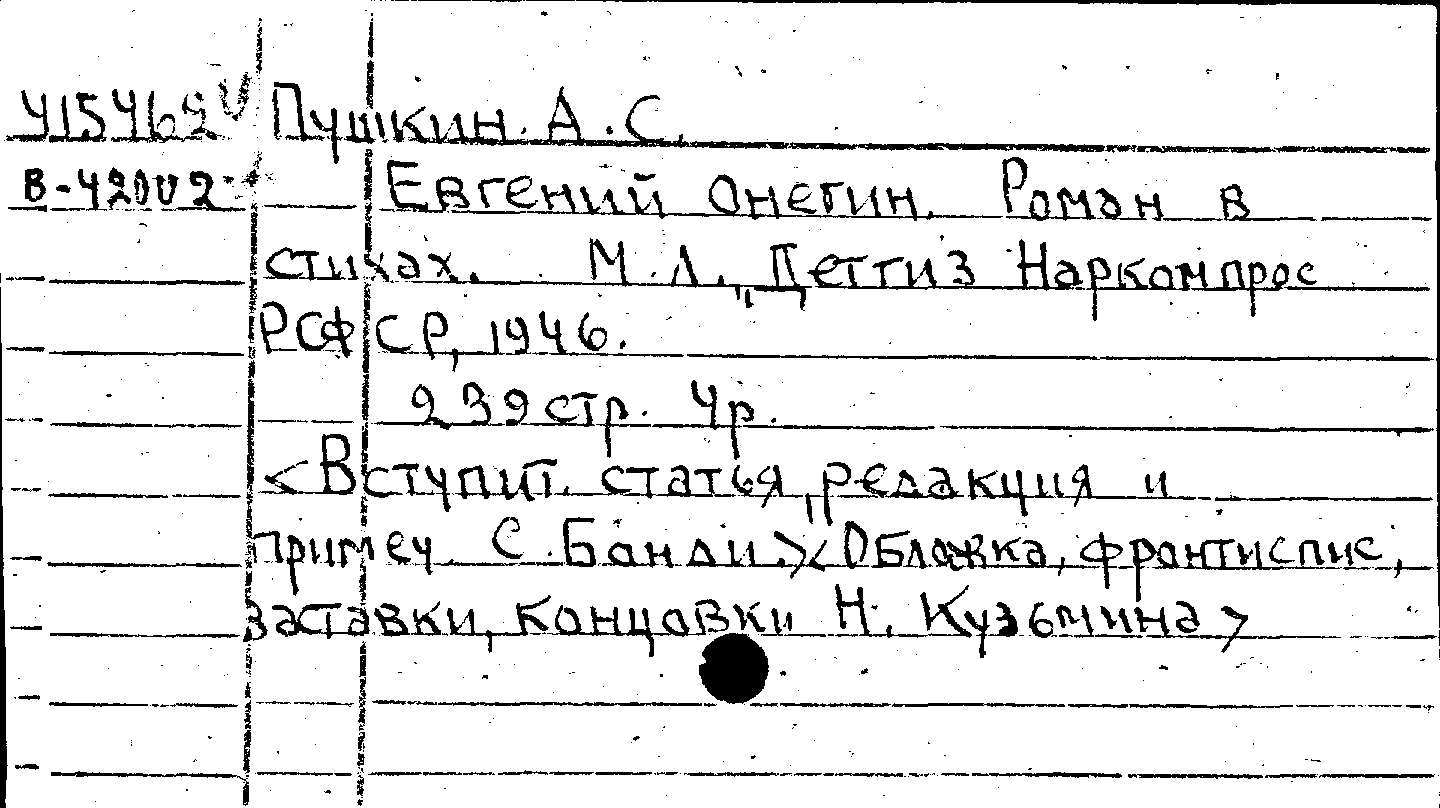 У15462 Пушкин. А.С.
В-42002 Евгений Онегин. Роман в
стихах. М.Л., Детгиз Наркомпрос
РСФСР, 1946.
239стр. 4р.
<Вступит. статья, редакция и
примеч. С.Бонди.><Обложка, фронтиспис,
заставки, концовки Н. Кузьмина>